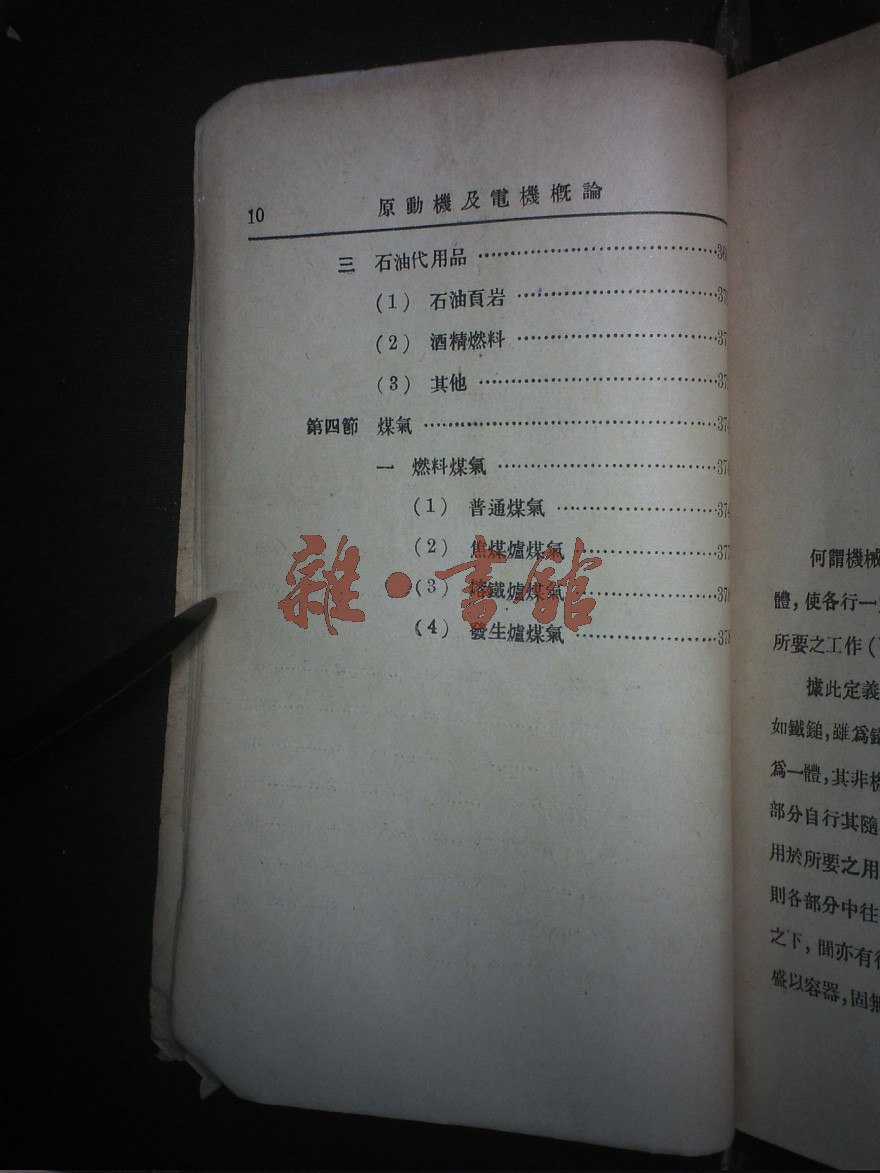 10
原動機及電機概論
三 石油代用品
(1) 石油頁岩
(2) 酒精燃料
(3) 其他
第四節 煤氣
一 燃料煤氣
(1) 普通煤氣
(2) 焦煤爐煤氣
(3) 鐵爐煤氣
(4) 發生爐煤氣
雜·書館
何謂機械
體,使各行一
所要之工作(
據此定義
如鐵鎚,雖爲
爲一體,其非機
部分自行其隨
用於所要之用
則各部分中往
之下,間亦有
盛以容器,固無